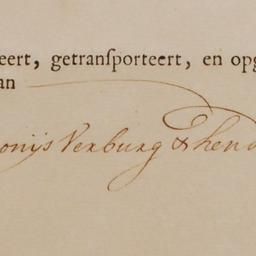 eert, getranſporteert, en opg
an
onijs Verburg & hend